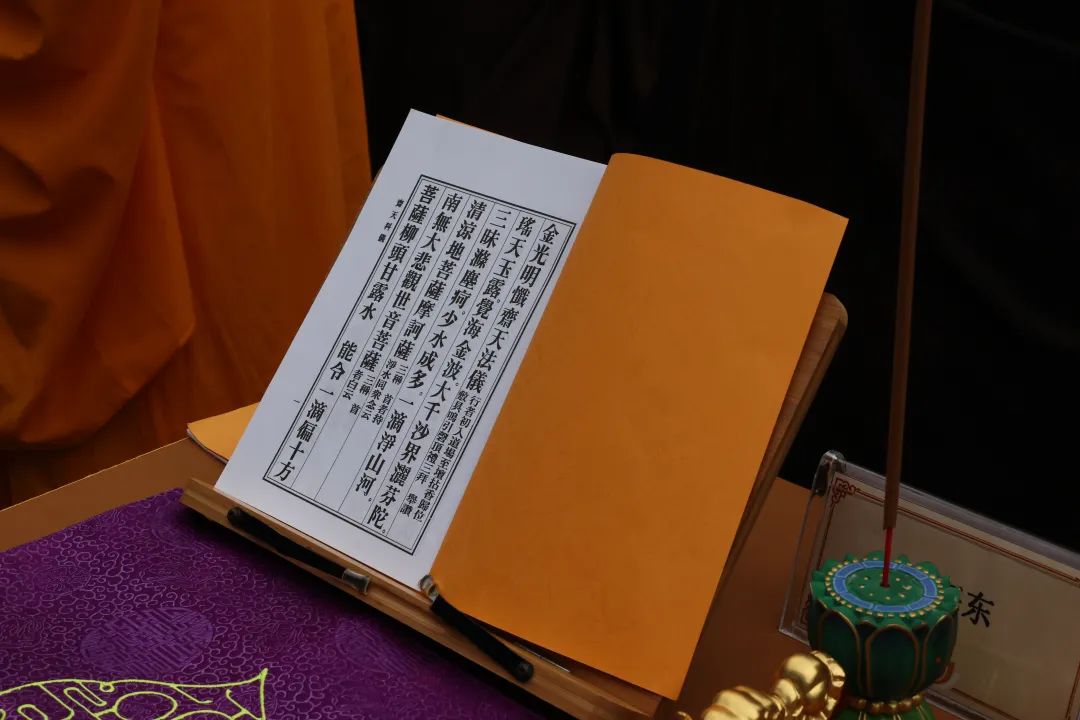 金光明懺齋天法儀
行者初入道場至壇拈香歸位
敷具鳴引磬頂禮三拜 舉讚
瑤天玉露。覺海金波。大千沙界灑芬陀。
三昧滌塵痾。少水成多。一滴淨山河。
清涼地菩薩摩訶薩
三稱 首者持
淨水同衆念云
南無大悲觀世音菩薩
三稱 首
者白云
菩薩柳頭甘露水 能令一滴徧十方
齋天科儀
一
东